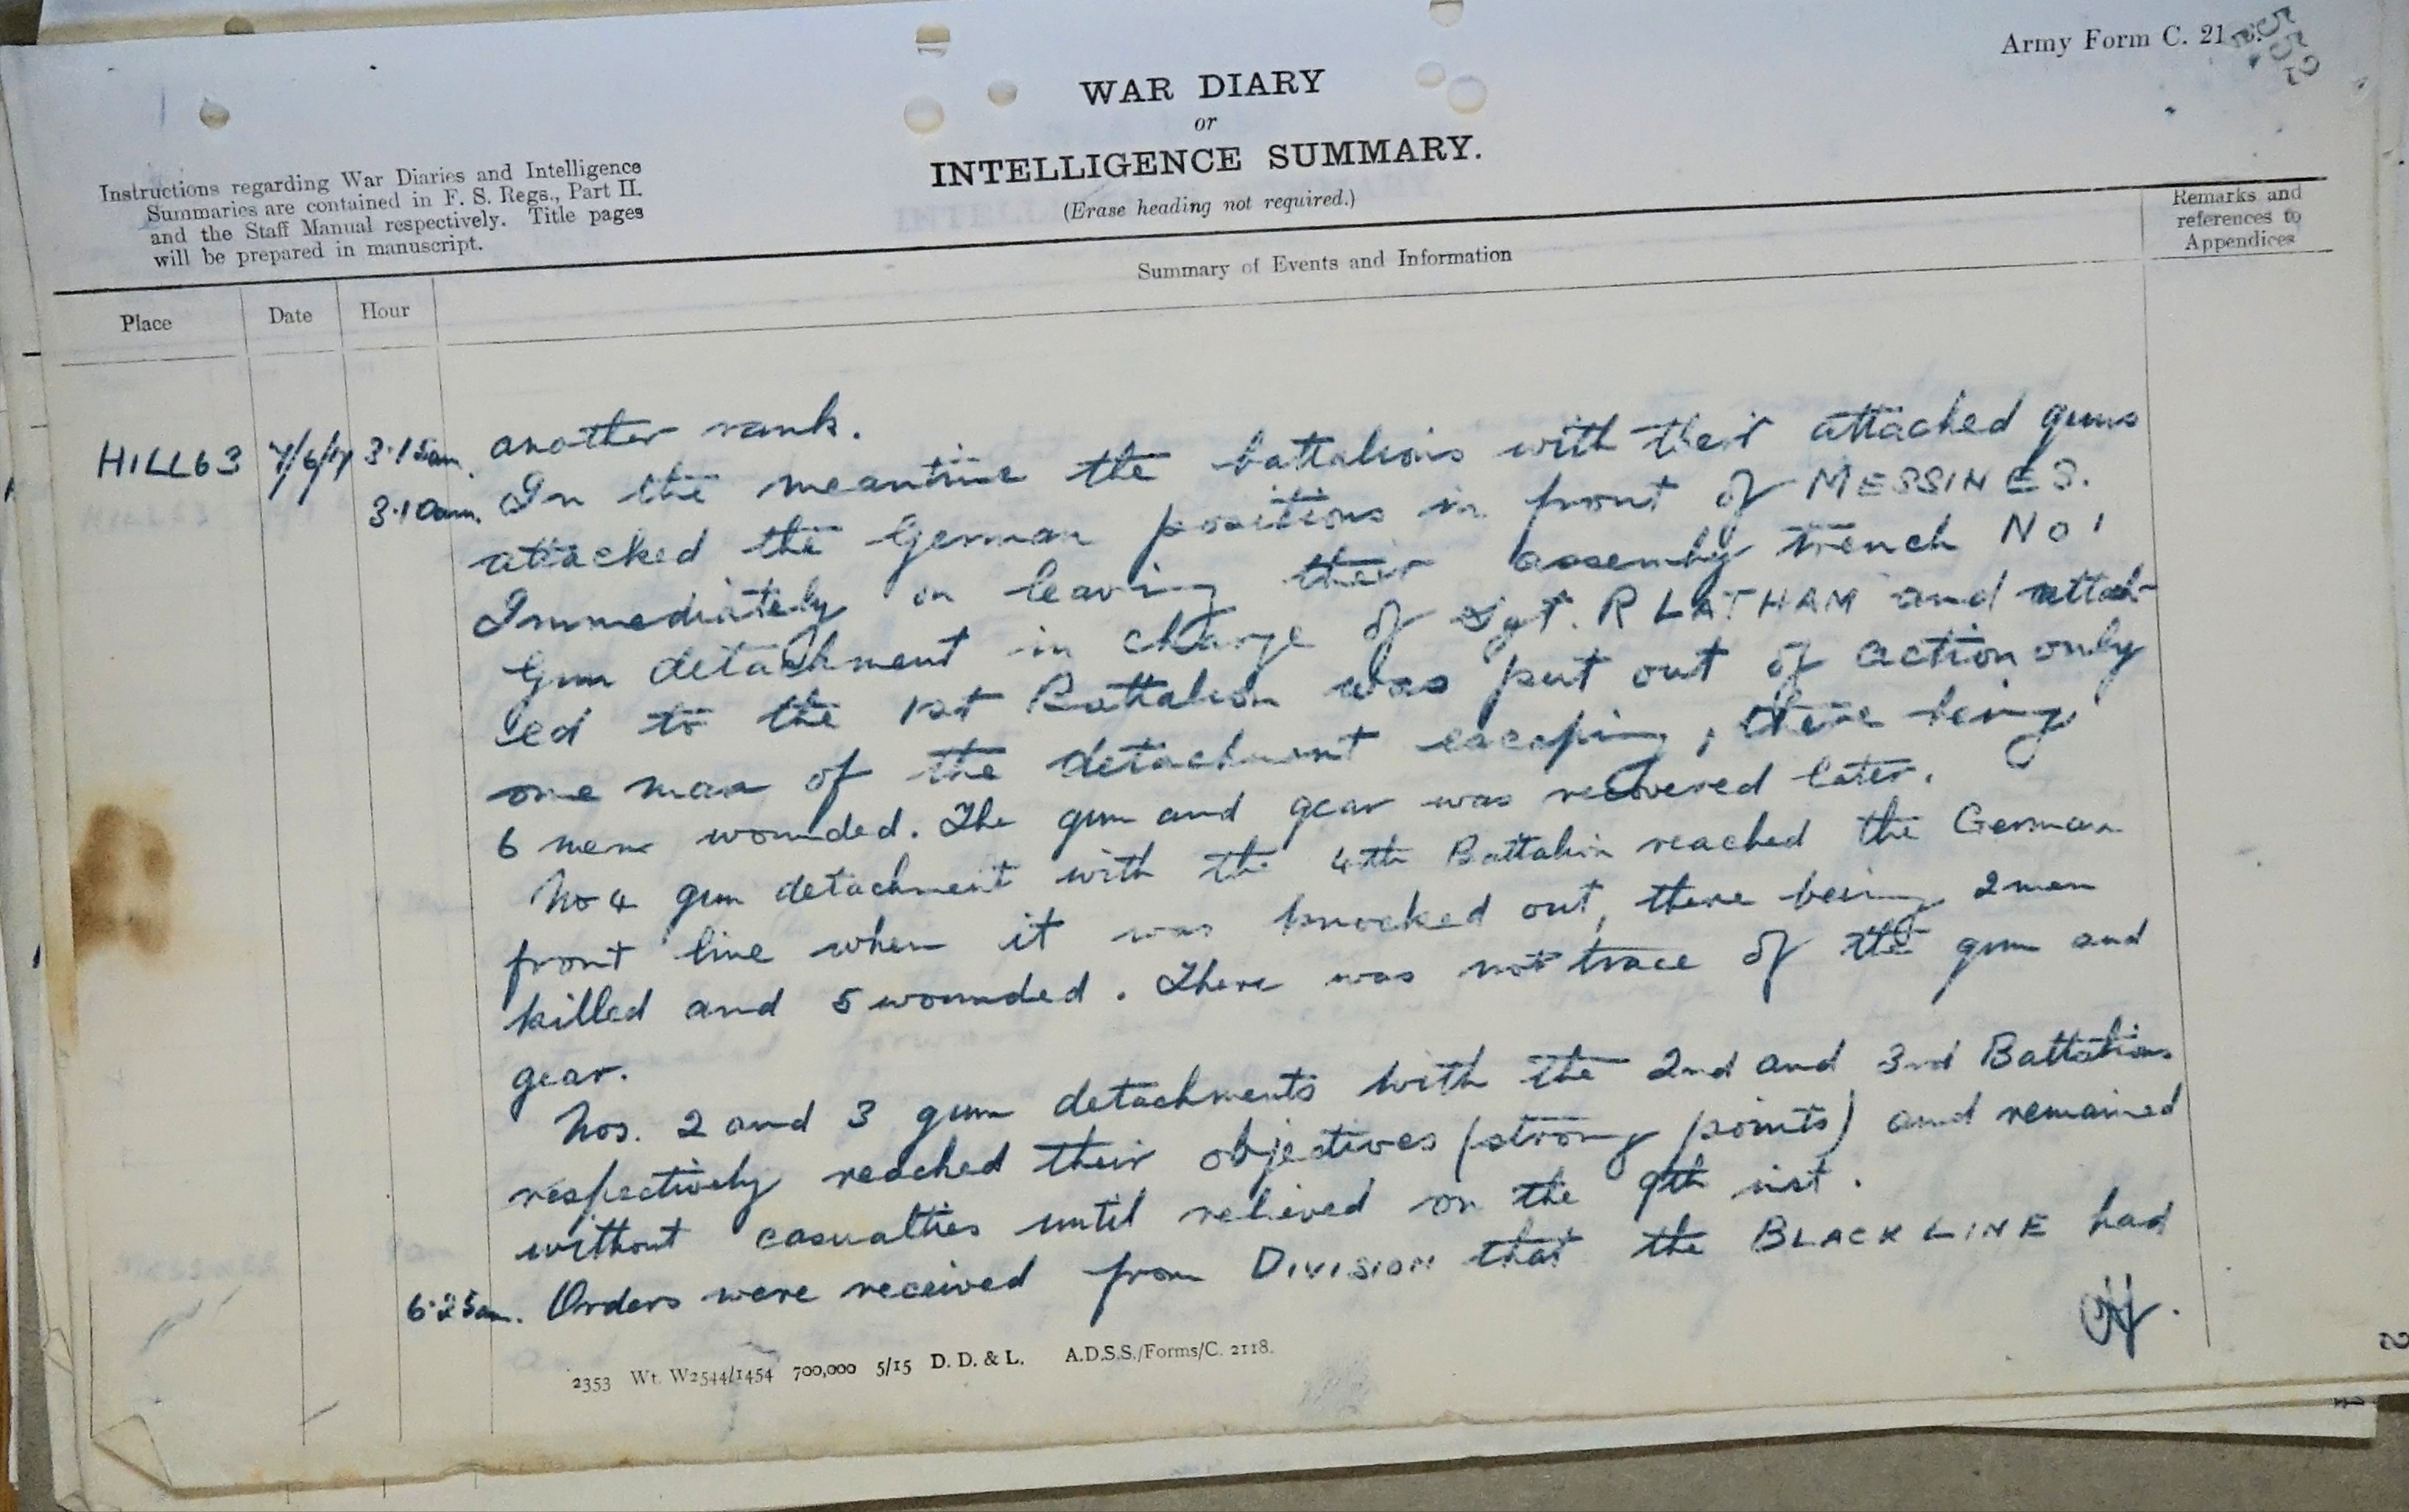 Army Form C. 21
WAR DIARY
or
INTELLIGENCE SUMMARY.
(Erase heading not required.)
Instructions regarding War Diaries and Intelligence
Summaries are contained in F. S. Regs., Part II.
and the Staff Manual respectively. Title pages
will be prepared in manuscript.
Remarks and
references to
Appendices
Summary of Events and Information
Place Date Hour
HILL 63 7/6/17 3.15am. another rank.
3.10am. In the meantime the battalions with their attached guns
attacked the German positions in front of MESSINES.
Immediately on leaving their assembly trench No 1
Gun detachment in charge of Sgt. R LATHAM and attach-
ed to the 1st Battalion was put out of action only
one man of the detachment escaping, there being
6 men wounded. The gun and gear was recovered later.
No 4 gun detachment with the 4th Battalion reached the German
front line when it was knocked out, there being 2 men
killed and 5 wounded. There was not trace of the gun and
gear.
Nos. 2 and 3 gun detachments with the 2nd and 3rd Battalions
respectively reached their objectives (strong points) and remained
without casualties until relieved on the 9th inst.
6.25am. Orders were received from DIVISION that the BLACK LINE had
2353 Wt. W2544/1454 700,000 5/15 D. D. & L. A.D.S.S./Forms/C. 2118.